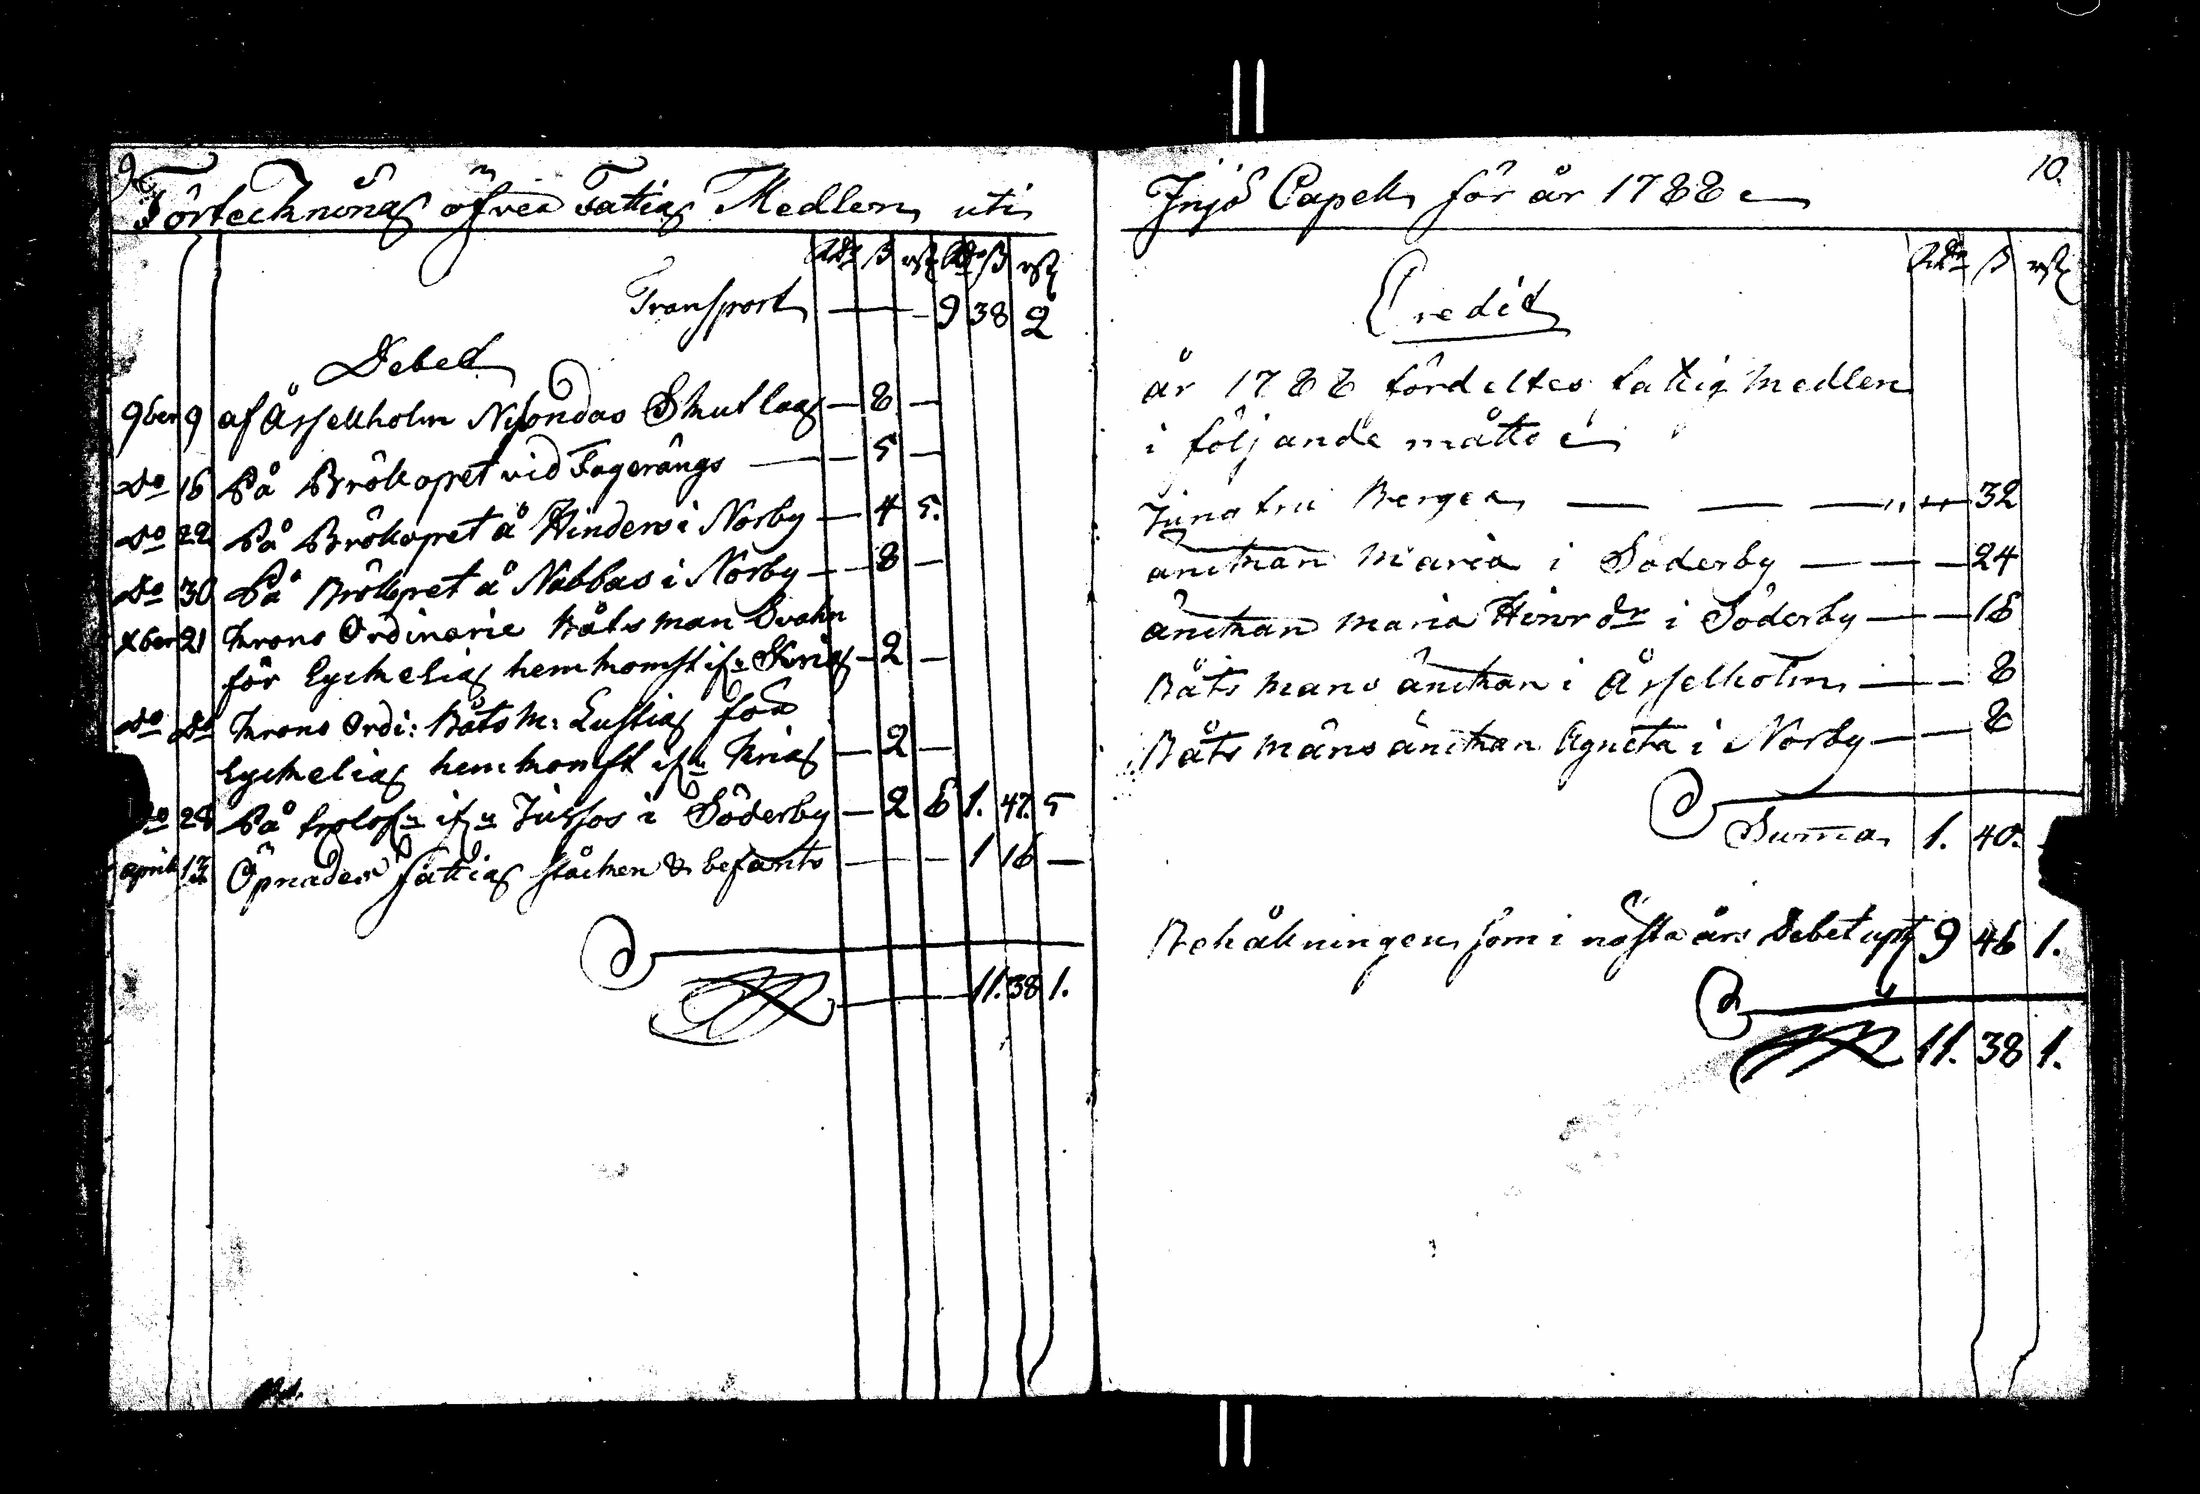 9.
Förteckning öfver Fattig Medlen uti
Rdr ß rst Rdr ß rst
Transport — — 9 38 2
Debet
9ber 9 af Åsselholm Nisondas Skutlag — 8 —
do 16 På Bröllopet vid Fagerängs — 5 —
do 22 På Bröllopet å Hinders i Norby — 4 5.
do 30 På Bröllopet å Nabbas i Norby — 8 —
xber 21 Krono Ordinarie Båtsman Svahn
för lyckelig hemkomst ifn Krig — 2 —
do do Krono Ordi: Båtsm: Lustig för
lyckelig hemkomst ifn Krig — 2 —
do 28 På ifn Jussos i Söderby — 2 6 1. 47. 5
april 13 Öpnades fattig stocken & befants — — — 1 16 —
11. 38 1.
10.
Injö Capell för år 1788
Rdr ß rst
Credit
år 1788 fördeltes fattig medlen
i följande måtto
Jungfru Berger — — — 32
änckan Maria i Söderby — — — 24
änckan Maria Hinrdr i Söderby — — 16
Båtsmans änckan i Åsselholm — — 8
Båtsmans änckan Agneta i Norby — — 8
Suma 1. 40.
Behållningen som i nästa års Debet upt 9 46 1.
11. 38 1.